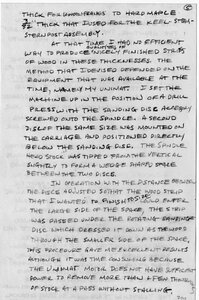 THICK FOR UNDERFRAMES TO HARD MAPLE
3/32" THICK THAT I USED FOR THE KEEL STEM-
STERNPOST ASSEMBLY.
AT THAT TIME I HAD NO EFFICIENT
WAY TO PRODUCE NICELY FINISHED STRIPS
OF WOOD IN THESE THICKNESSES. THE
METHOD THAT I DEVISED DEPENDED ON THE
EQUIPMENT THAT WAS AVAILABLE AT THE
TIME, NAMELY MY UNIMAT. I SET THE
MACHINE UP IN THE POSITION OF A DRILL
PRESS WITH THE SANDING DISC ALREADY
SCREWED ONTO THE SPINDLE. A SECOND
DISC OF THE SAME SIZE WAS MOUNTED ON
THE CARRIAGE AND POSITIONED DIRECTLY
BELOW THE SANDING DISK. THE SPINDLE
HEAD STOCK WAS TIPPED FROM THE VERTICAL
SLIGHTLY TO FORM A WEDGE SHAPED SPACE
BETWEEN THE TWO DISCS.
IN OPERATION WITH THE DISTANCE BETWEEN
THE DISCS ADJUSTED SO THAT THE WOOD STRIP
THAT I WANTED TO FINISH WOULD ENTER
THE LARGE SIDE OF THE SPACE, THE STRIP
WAS PASSED UNDER THE ROTATING SANDING
DISC WHICH DRESSED IT DOWN AS THE WOOD
THROUGH THE SMALLER SIDE OF THE SPACE.
THIS PROCEDURE GAVE ME EXCELLENT RESULTS
ALTHOUGH IT WAS TIME CONSUMING BECAUSE
THE UNIMAT MOTOR DOES NOT HAVE SUFFICIENT
POWER TO REMOVE MORE THAN A FEW THOUS
OF STOCK AT A PASS WITHOUT STALLING.